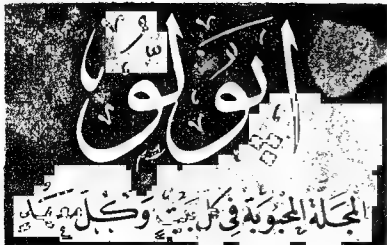 ابولو
المجلة المحبوبة في كل بيت وكل